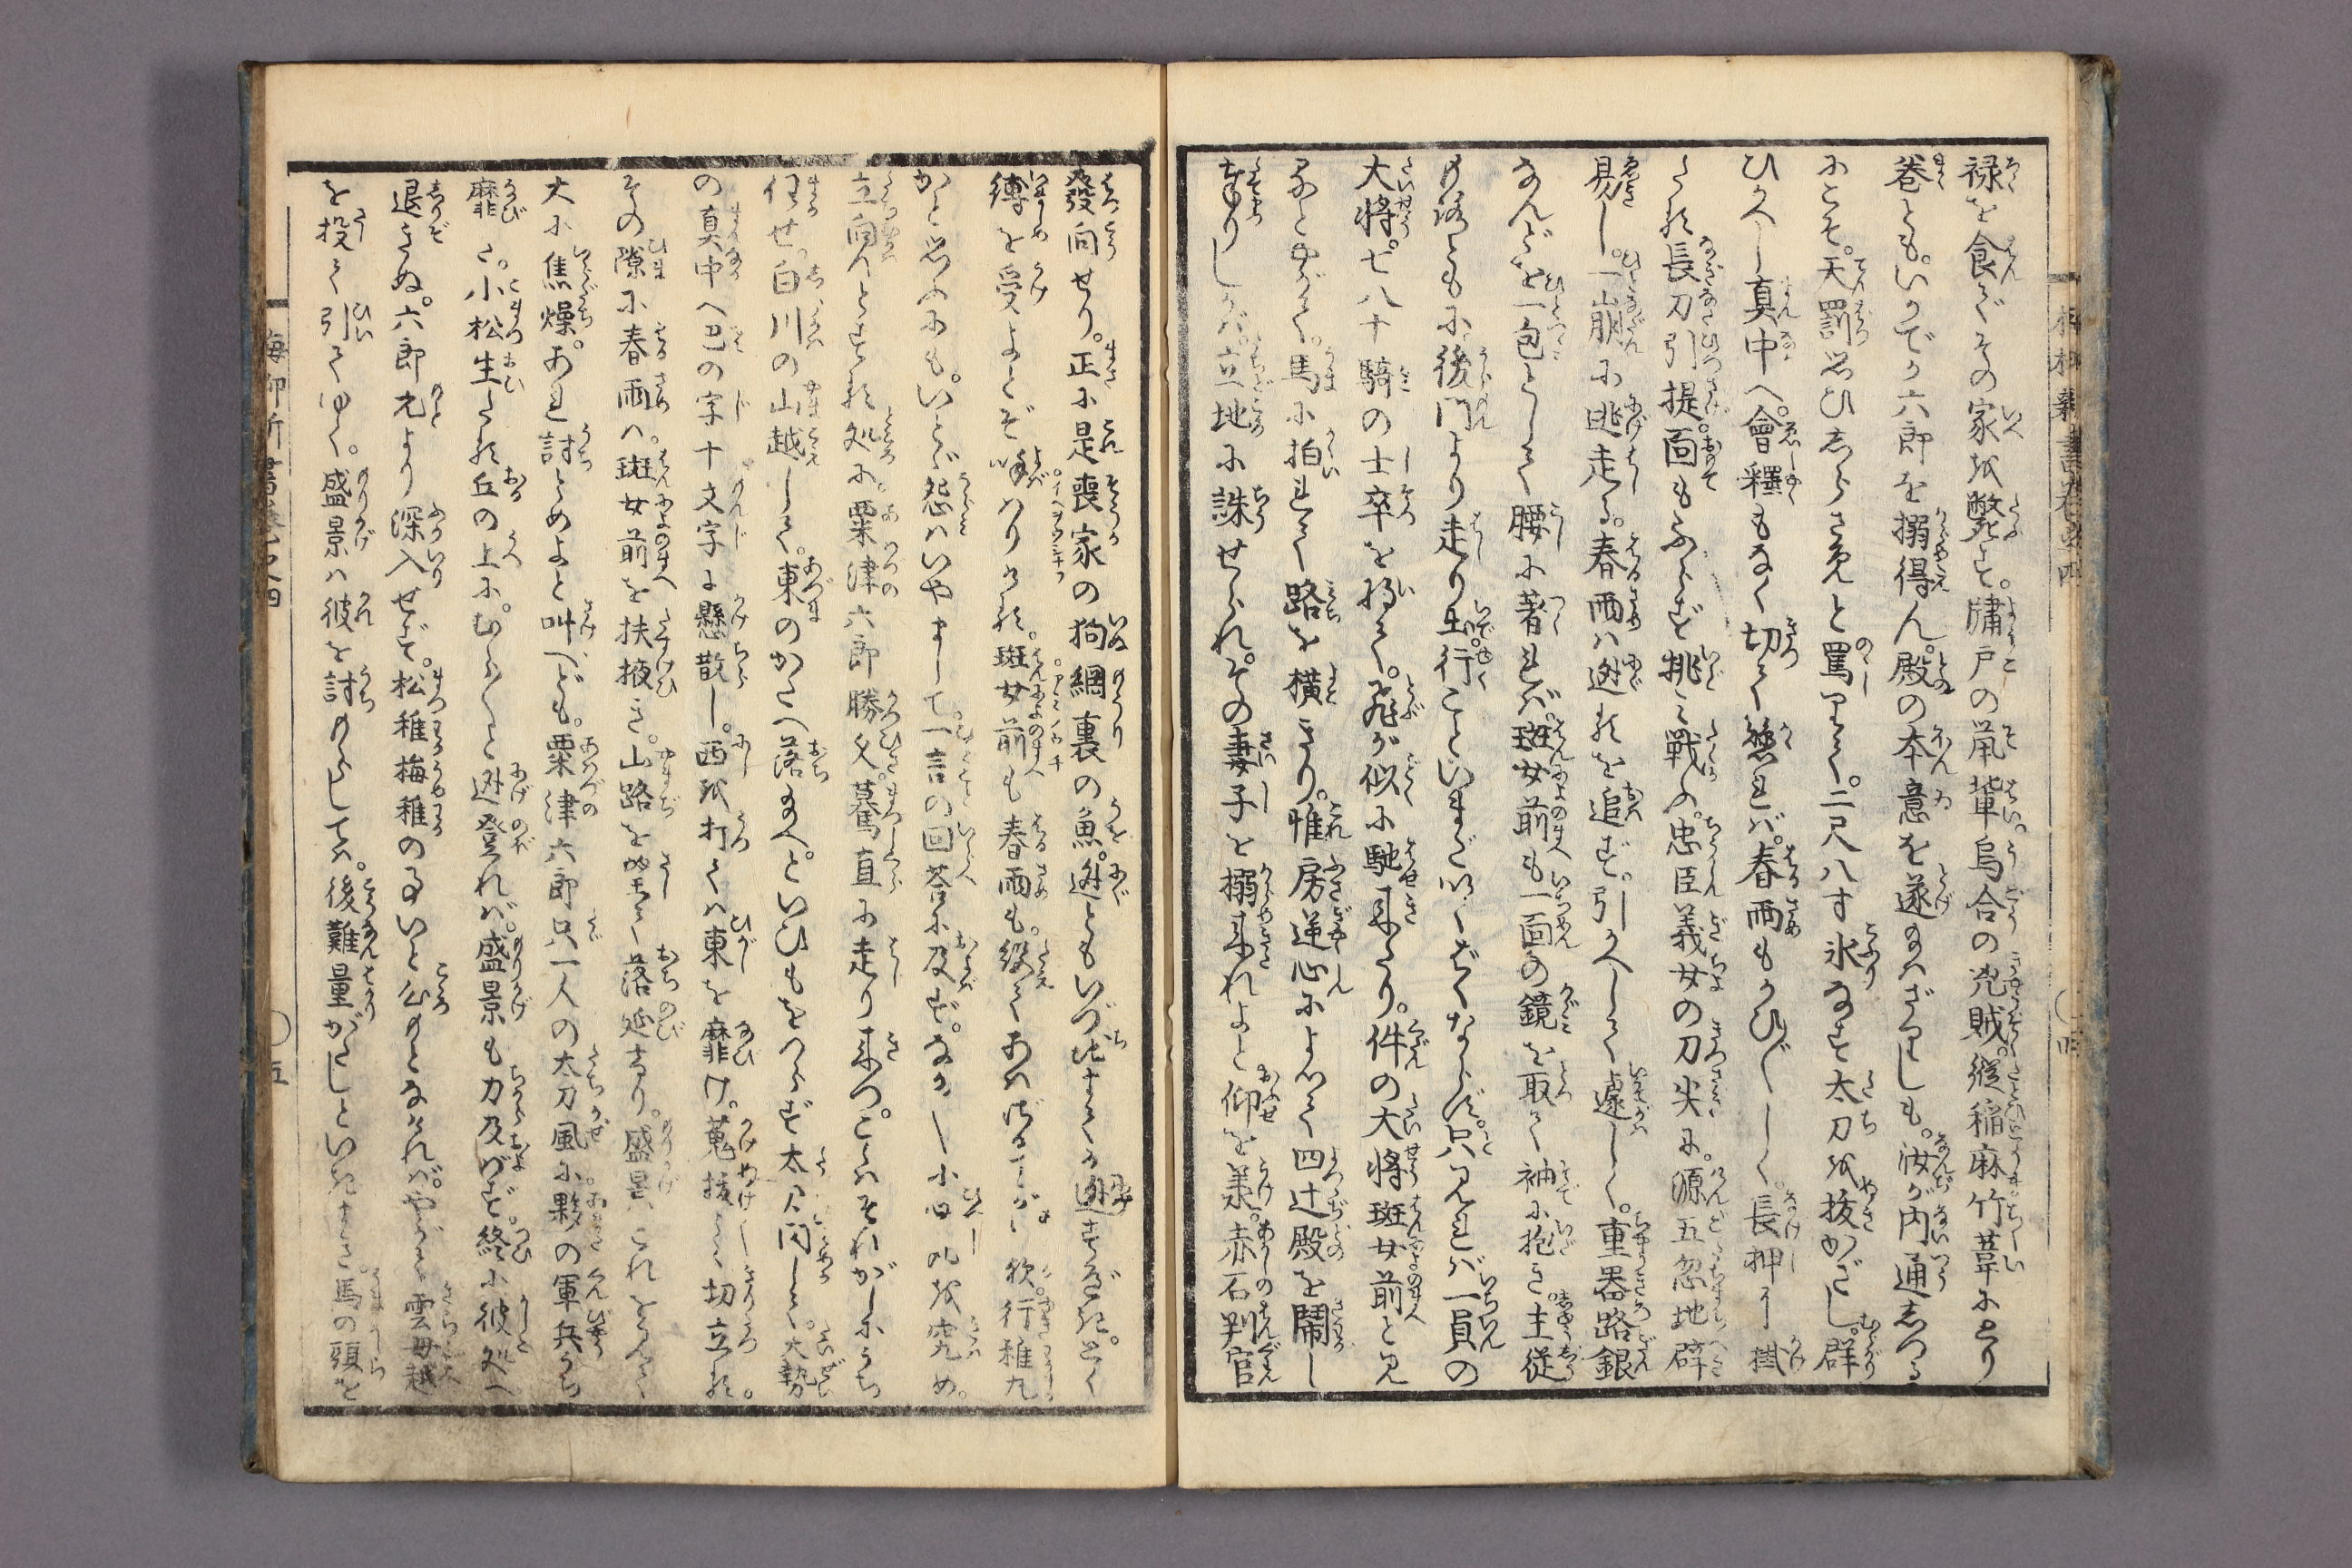 禄を食でその家を斃す。牗戸の鼡輩。烏合の兇賊。縦稲麻竹葦にとり
巻とも。いかでか六郎を搦得ん。殿の本意を遂玉はざりしも。汝が内通しつる
にこそ。天罰思ひしらさんと罵りて。二尺八寸氷なす太刀を抜かざし。群
ひかへし真中へ。會釋もなく切て懸れば。春雨もかひ〴〵しく。長押に掛
たる長刀引提。面もふらず挑み戦ふ。忠臣義女の刀尖に。源五忽地辟
易し。一崩に迯走る。春雨は迯るを追ず。引かへして遽しく。重器路銀
なんどを一包として腰に著れば。班女前も一面の鏡を取て袖に抱き。主従
のがれんともに。後門より走り出。行こといまだ幾ならず。只見れば一員の
大将。七八十騎の士卒を将て。飛が似に馳来たり。件の大将班女前と見
るとやがて。馬に拍れて路を横ぎり。惟房逆心によつて四辻殿を鬧し
奉りしかば。立地に誅せられ。その妻子を搦来れよと仰を羕。赤石判官
發向せり。正に是喪家の狗網裏の魚。迯ともいづ地までか迯すべき。とく
縛を受よとぞ呼はりける。班女前も春雨も。絶てあはざりしが
かと思ふにも。いとゞ怨はいやまして。一言の回荅に及ず。なか〳〵に必死を究め。
立向んとする処に。粟津六郎勝久。驀直に走り来つ。こゝはそれがしにうち
任せ。白川の山越して。東のかたへ落玉へ。といひもをはらず太刀閃して。大勢
の真中へ巴の字十文字に懸散し。西を打ては東を靡け。蒐抜して切立る。
その隙に春雨は。班女前を扶掖き。山路を望て落延たり。盛景これを見て
大に焦燥。あれ討とめよと叫べども。粟津六郎只一人の太刀風に夥の軍兵うち
靡き。小松生たる丘の上に。むら〳〵と迯登れば。盛景も力及ばず。終に彼処へ
退きぬ。六郎元より深入せず。松稚梅稚の事いと心もとなければ。やがて雲母越
を投て引てゆく。盛景は彼を討もらしては。後難量がたしといきまき。馬の頭を